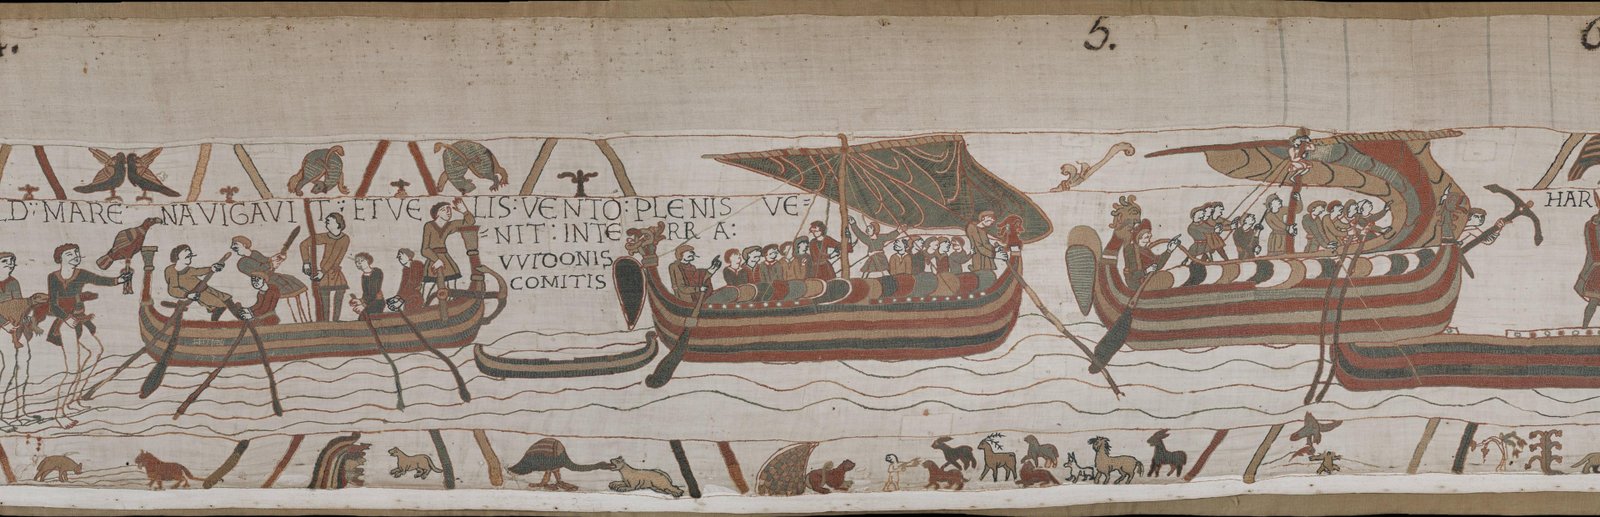 5.
LD : MARE NAVIGAVIT : ET VE LIS : VENTO : PLENIS VE=
=NIT : INTE RRA :
VVIDONIS
COMITIS
HAR